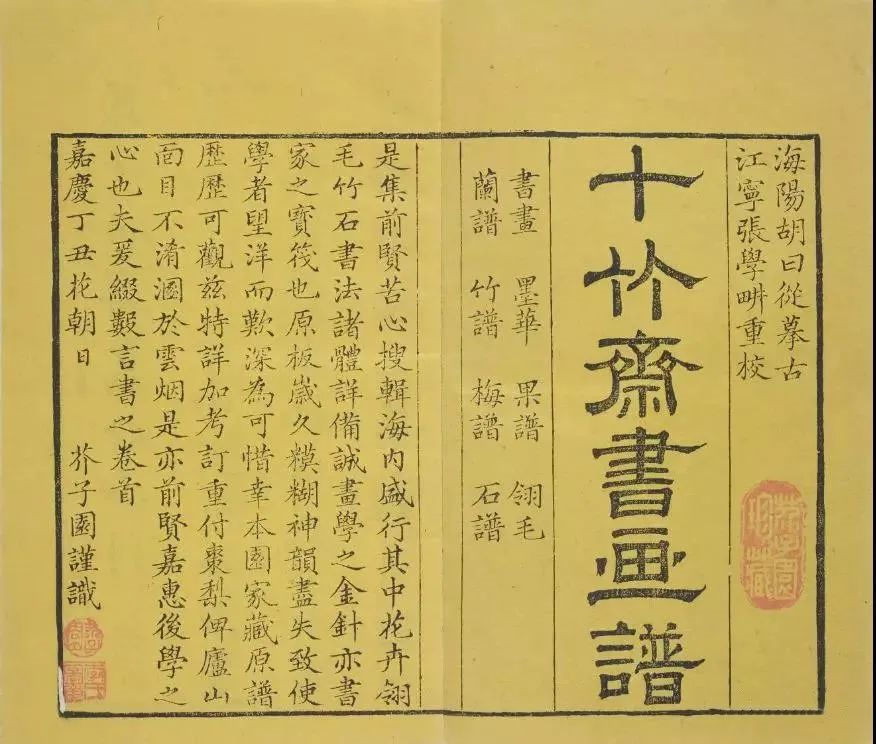 海陽胡曰從摹古
江寧張學畊重校
十竹齋書画譜
書畫 墨華 果譜 翎毛
蘭譜 竹譜 梅譜 石譜
是集前賢苦心搜輯海内盛行其中花卉翎
毛竹石書法諸體詳備誠畫學之金針亦書
家之寶筏也原板歲久糢糊神韻盡失致使
學者望洋而歎深為可惜幸本園家藏原譜
歷歷可觀茲特詳加考訂重付棗梨俾廬山
面目不淆溷於雲烟是亦前賢嘉惠後學之
心也夫爰綴數言書之卷首
嘉慶丁丑花朝日 芥子園謹識
芥子園珍藏